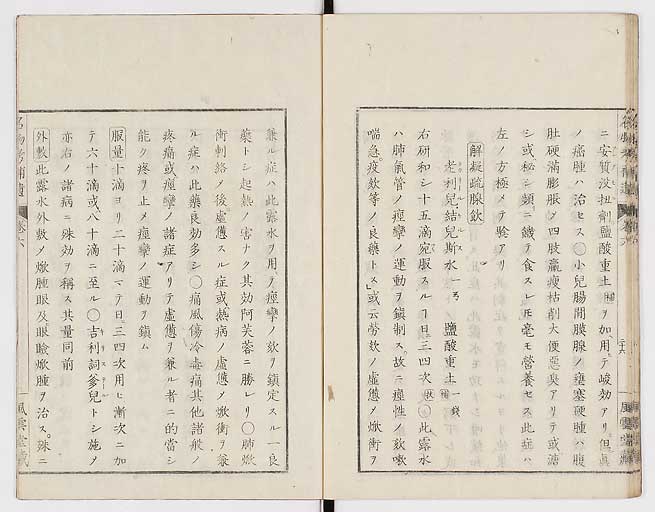 ニ安質没扭剤鹽酸重土ヲ加用テ峻効アリ但眞
ノ癌腫ハ治セス〇小兒腸間膜腺ノ壅塞硬腫ハ腹
肚硬滿膨脹ノ四肢羸瘦枯削大便惡臭アリテ或溏
シ或秘シ頻ニ饑テ食スレ𪜈毫モ營養セス此症ハ
左ノ方極メテ驗アリ
解凝疏腺飲
老利兒結兒斯水 鹽酸重土
右研和シ十五滴宛服スルヿ日三四次 此露水
ハ肺氣管ノ痙攣ノ運動ヲ鎭制ス故ニ痙性ノ欬嗽
喘急疫欬等ノ良藥トス或云勞欬ノ虛憊ノ焮衝ヲ
兼ル症ハ此露水ヲ用テ痙攣ノ欬ヲ鎭定スル一良
藥トシ起熱ノ害ナク其効阿芙蓉ニ勝レリ〇肺焮
衝刺絡ノ後虛憊スル症或熱病ノ虛憊ノ焮衝ヲ兼
ル症ハ此藥良効多シ〇痛風傷冷毒痛其他諸般ノ
疼痛或痙攣ノ諸症アリテ虛憊ヲ兼ル者ニ的當シ
能ク疼ヲ止メ痙攣ノ運動ヲ鎭ム
服量十滴ヨリ二十滴マテ日三四次用ヒ漸次ニ加
テ六十滴或八十滴ニ至ル〇吉利詞爹兒トシ施ノ
亦右ノ諸病ニ殊効ヲ稱ス其量同前
外敷此露水外敷ノ焮腫眼及眼瞼焮腫ヲ治ス殊ニ
名物考補遺 卷六
風雲堂藏